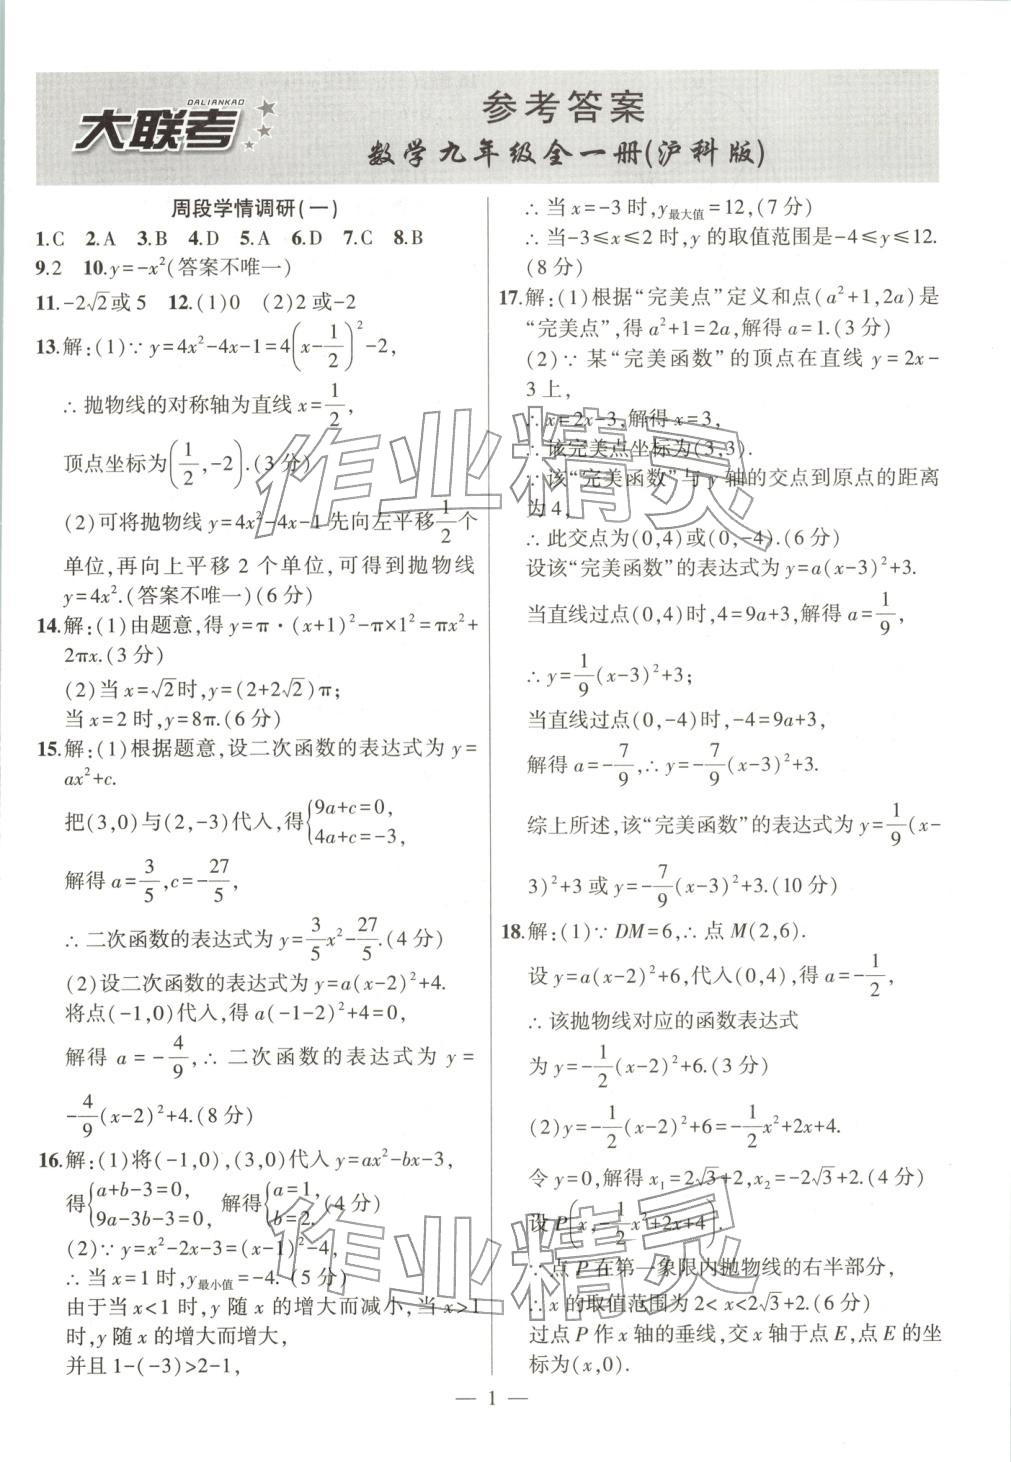 DALIANKAO
大联考
参考答案
数学九年级全一册(沪科版)
周段学情调研(一)
1.C 2.A 3.B 4.D 5.A 6.D 7.C 8.B
9.2 10.y=-x²(答案不唯一)
11.-2√2或5 12.(1)0 (2)2或-2
13.解:(1)∵y=4x²-4x-1=4(x-1/2)²-2,
∴抛物线的对称轴为直线x=1/2,
顶点坐标为(1/2,-2).(3分)
(2)可将抛物线y=4x²-4x-1先向左平移1/2个
单位,再向上平移2个单位,可得到抛物线
y=4x².(答案不唯一)(6分)
14.解:(1)由题意,得y=π·(x+1)²-π×1²=πx²+
2πx.(3分)
(2)当x=√2时,y=(2+2√2)π;
当x=2时,y=8π.(6分)
15.解:(1)根据题意,设二次函数的表达式为y=
ax²+c.
把(3,0)与(2,-3)代入,得{9a+c=0, 4a+c=-3,
解得a=3/5,c=-27/5,
∴二次函数的表达式为y=3/5x²-27/5.(4分)
(2)设二次函数的表达式为y=a(x-2)²+4.
将点(-1,0)代入,得a(-1-2)²+4=0,
解得a=-4/9,∴二次函数的表达式为y=
-4/9(x-2)²+4.(8分)
16.解:(1)将(-1,0),(3,0)代入y=ax²-bx-3,
得{a+b-3=0, 9a-3b-3=0, 解得{a=1, b=2.(4分)
(2)∵y=x²-2x-3=(x-1)²-4,
∴当x=1时,y最小值=-4.(5分)
由于当x<1时,y随x的增大而减小,当x>1
时,y随x的增大而增大,
并且1-(-3)>2-1,
∴当x=-3时,y最大值=12,(7分)
∴当-3≤x≤2时,y的取值范围是-4≤y≤12.
(8分)
17.解:(1)根据“完美点”定义和点(a²+1,2a)是
“完美点”,得a²+1=2a,解得a=1.(3分)
(2)∵某“完美函数”的顶点在直线y=2x-
3上,
∴x=2x-3,解得x=3,
∴该完美点坐标为(3,3).
∵该“完美函数”与y轴的交点到原点的距离
为4,
∴此交点为(0,4)或(0,-4).(6分)
设该“完美函数”的表达式为y=a(x-3)²+3.
当直线过点(0,4)时,4=9a+3,解得a=1/9,
∴y=1/9(x-3)²+3;
当直线过点(0,-4)时,-4=9a+3,
解得a=-7/9,∴y=-7/9(x-3)²+3.
综上所述,该“完美函数”的表达式为y=1/9(x-
3)²+3或y=-7/9(x-3)²+3.(10分)
18.解:(1)∵DM=6,∴点M(2,6).
设y=a(x-2)²+6,代入(0,4),得a=-1/2,
∴该抛物线对应的函数表达式
为y=-1/2(x-2)²+6.(3分)
(2)y=-1/2(x-2)²+6=-1/2x²+2x+4.
令y=0,解得x₁=2√3+2,x₂=-2√3+2.(4分)
设P(x,-1/2x²+2x+4).
∵点P在第一象限内抛物线的右半部分,
∴x的取值范围为2<x<2√3+2.(6分)
过点P作x轴的垂线,交x轴于点E,点E的坐
标为(x,0).
— 1 —
作业精灵
作业精灵